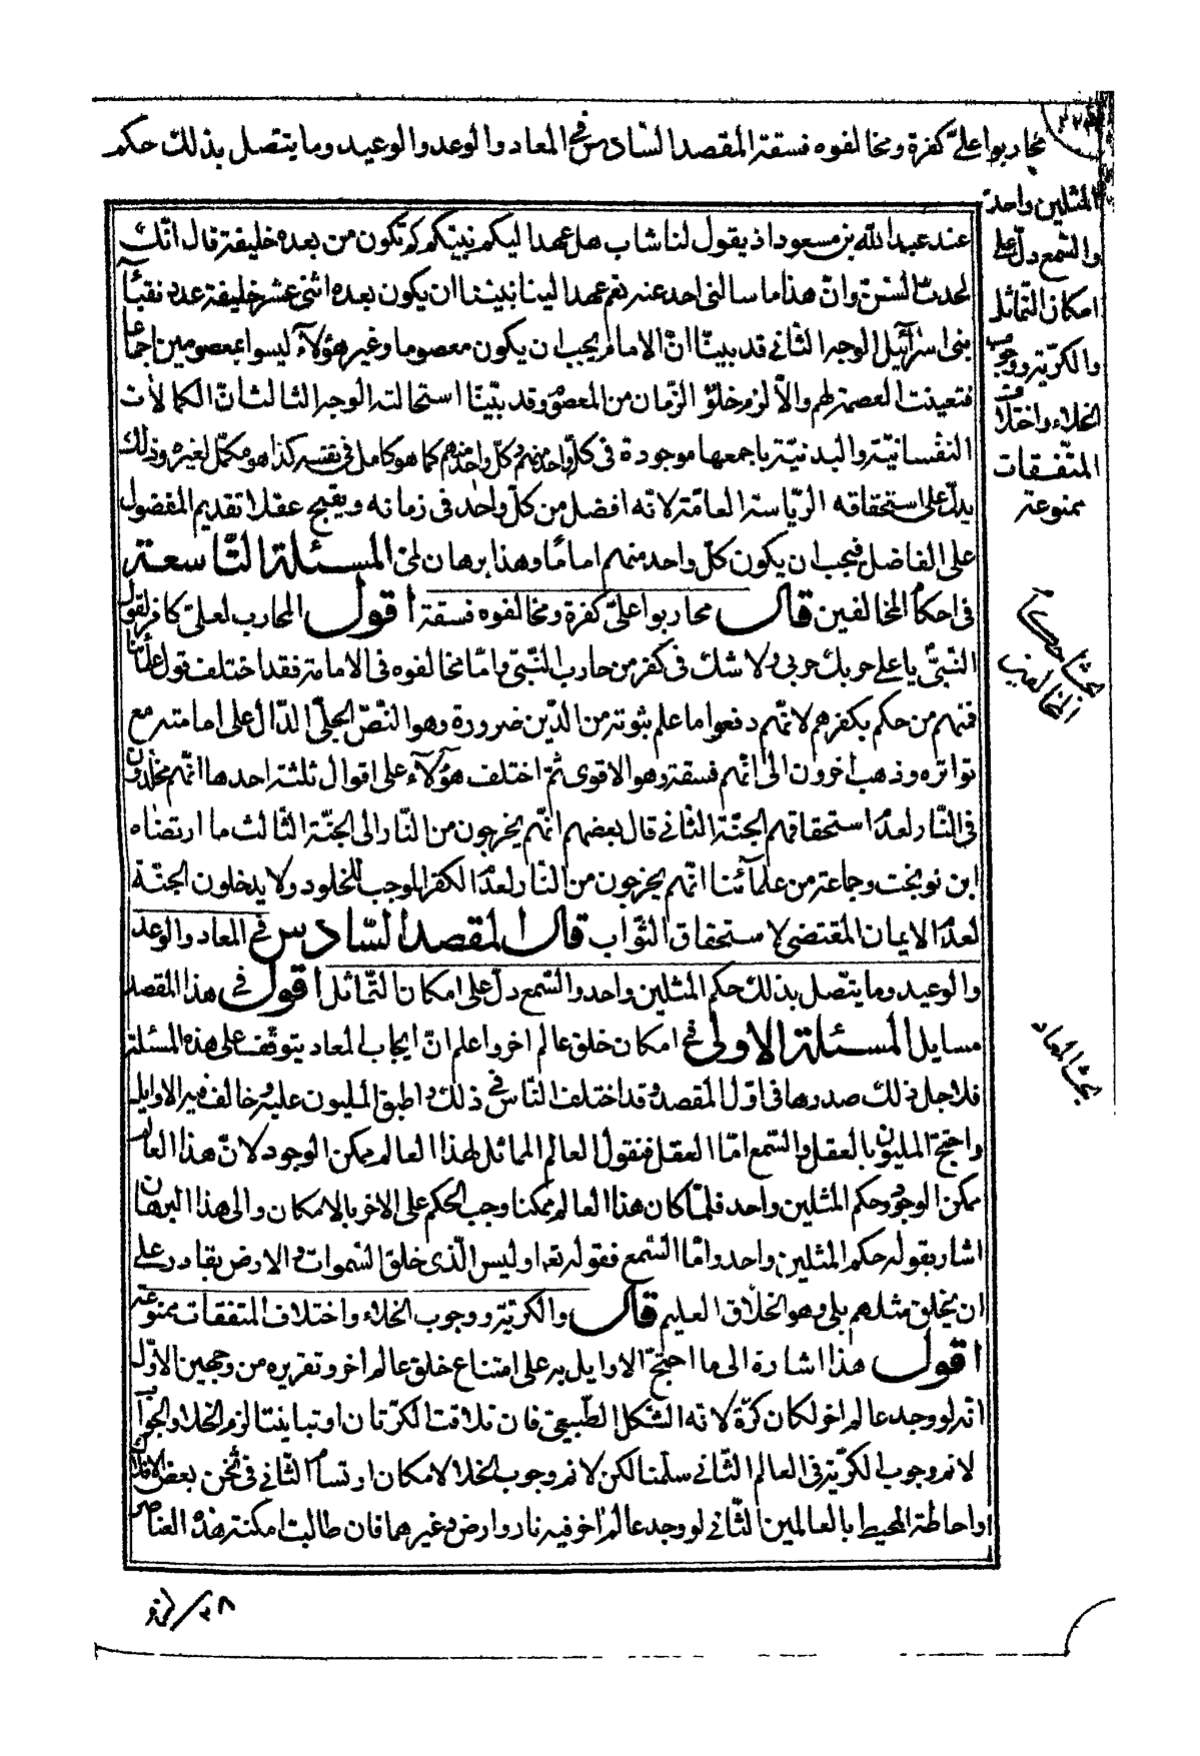 محاربوا علیّ كفرة ومخالفوه فسقة المقصد السّادس فى المعاد والوعد والوعيد وما يتصل بذلك حكم
المثلين واحد
والسّمع دلّ على
امكان التّماثل
والكريّة ووجوب
الخلاء واختلاف
المتّفقات
ممنوعة
عند عبد الله بن مسعود اذ يقول لنا شاب هل عهد اليكم نبيّكم كم تكون من بعده خليفة قال انّك
لحدث السّنّ وانّ هذا ما سالنى احد عنه نعم عهد الينا نبيّنا ان يكون بعده اثنى عشر خليفة عدد نقباء
بنى اسرآئيل الوجه الثّانى قد بيّنّا انّ الامام يجب ان يكون معصوما وغير هؤلآء ليسوا بمعصومين اجماعا
فتعينت العصمة لهم والّا لزم خلوّ الزّمان من المعصوم وقد بيّنّا استحالته الوجه الثالث انّ الكمالات
النفسانيّة والبدنيّة باجمعها موجودة فى كلّ واحد منهم وكلّ واحد منهم كما هو كامل فى نفسه كذا هو مكمّل لغيره وذلك
يدلّ على استحقاقه الرّياسة العامّة لانه افضل من كلّ واحد فى زمانه ويقبح عقلا تقديم المفضول
على الفاضل فيجب ان يكون كلّ واحد منهم امامًا وهذا برهان لمّى المسئلة التّاسعة
فى احكام المخالفين قال محاربوا علىّ كفرة ومخالفوه فسقة اقول المحارب لعلىّ كافر لقول
النّبىّ يا على حربك حربى ولا شك فى كفر من حارب النّبىّ وامّا مخالفوه فى الامامة فقد اختلف قول علمآئنا
فمنهم من حكم بكفرهم لانّهم دفعوا ما علم ثبوته من الدّين ضرورة وهو النّصّ الجلىّ الدّال على امامته مع
تواتره وذهب اخرون الى انّهم فسقة وهو الاقوى ثمّ اختلف هؤلآء على اقوال ثلثة احدها انّهم مخلّدون
فى النّار لعدم استحقاقهم الجنّة الثّانى قال بعضهم انّهم يخرجون من النّار الى الجنّة الثّالث ما ارتضاه
ابن نوبخت وجماعة من علمآئنا انّهم يخرجون من النّار لعدم الكفر الموجب للخلود ولا يدخلون الجنّة
لعدم الايمان المقتضى لاستحقاق الثّواب قال المقصد السّادس فى المعاد والوعد
والوعيد وما يتّصل بذلك حكم المثلين واحد والسّمع دلّ على امكان التّماثل اقول فى هذا المقصد
مسايل المسئلة الاولى فى امكان خلق عالم اخر واعلم انّ ايجاب المعاد يتوقّف على هذه المسئلة
فلاجل ذلك صدرها فى اوّل المقصد وقد اختلف النّاس فى ذلك واطبق المليون عليه وخالف فيه الاوايل
واحتجّ المليّون بالعقل والسّمع امّا العقل فنقول العالم المماثل لهذا العالم ممكن الوجود لانّ هذا العالم
ممكن الوجود وحكم المثلين واحد فلمّا كان هذا العالم ممكنا وجب الحكم على الاخر بالامكان والى هذا البرهان
اشار بقوله حكم المثلين واحد وامّا السّمع فقوله تعه اوليس الّذى خلق السّموات و الارض بقادر على
ان يخلق مثلهم بلى وهو الخلّاق العليم قال والكريّة ووجوب الخلاء واختلاف المتفقات ممنوعة
اقول هذا اشارة الى ما احتجّ الاوايل به على امتناع خلق عالم اخر وتقريره من وجهين الاوّل
انّه لو وجد عالم اخر لكان كرّة لانه الشكل الطّبيعىّ فان تلاقت الكرّتان او تباينتا لزم الخلاء والجواب
لا نم وجوب الكريّة فى العالم الثّانى سلّمنا لكن لا نم وجوب الخلاء لامكان ارتسام الثّانى فى ثخن بعض الافلاك
او احاطة المحيط بالعالمين الثّانى لو وجد عالم اخر فيه نار وارض وغيرهما فان طالبت امكنة هذه العناصر
بحث احكام
المخالفين
بحث المعاد